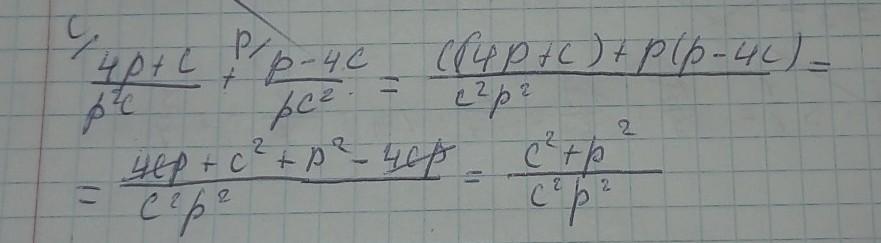 c/ (4p+c)/(p²c) + p/ (p-4c)/(pc²) = (c(4p+c)+p(p-4c))/(c²p²) =
= (4cp+c²+p²-4cp)/(c²p²) = (c²+p²)/(c²p²)